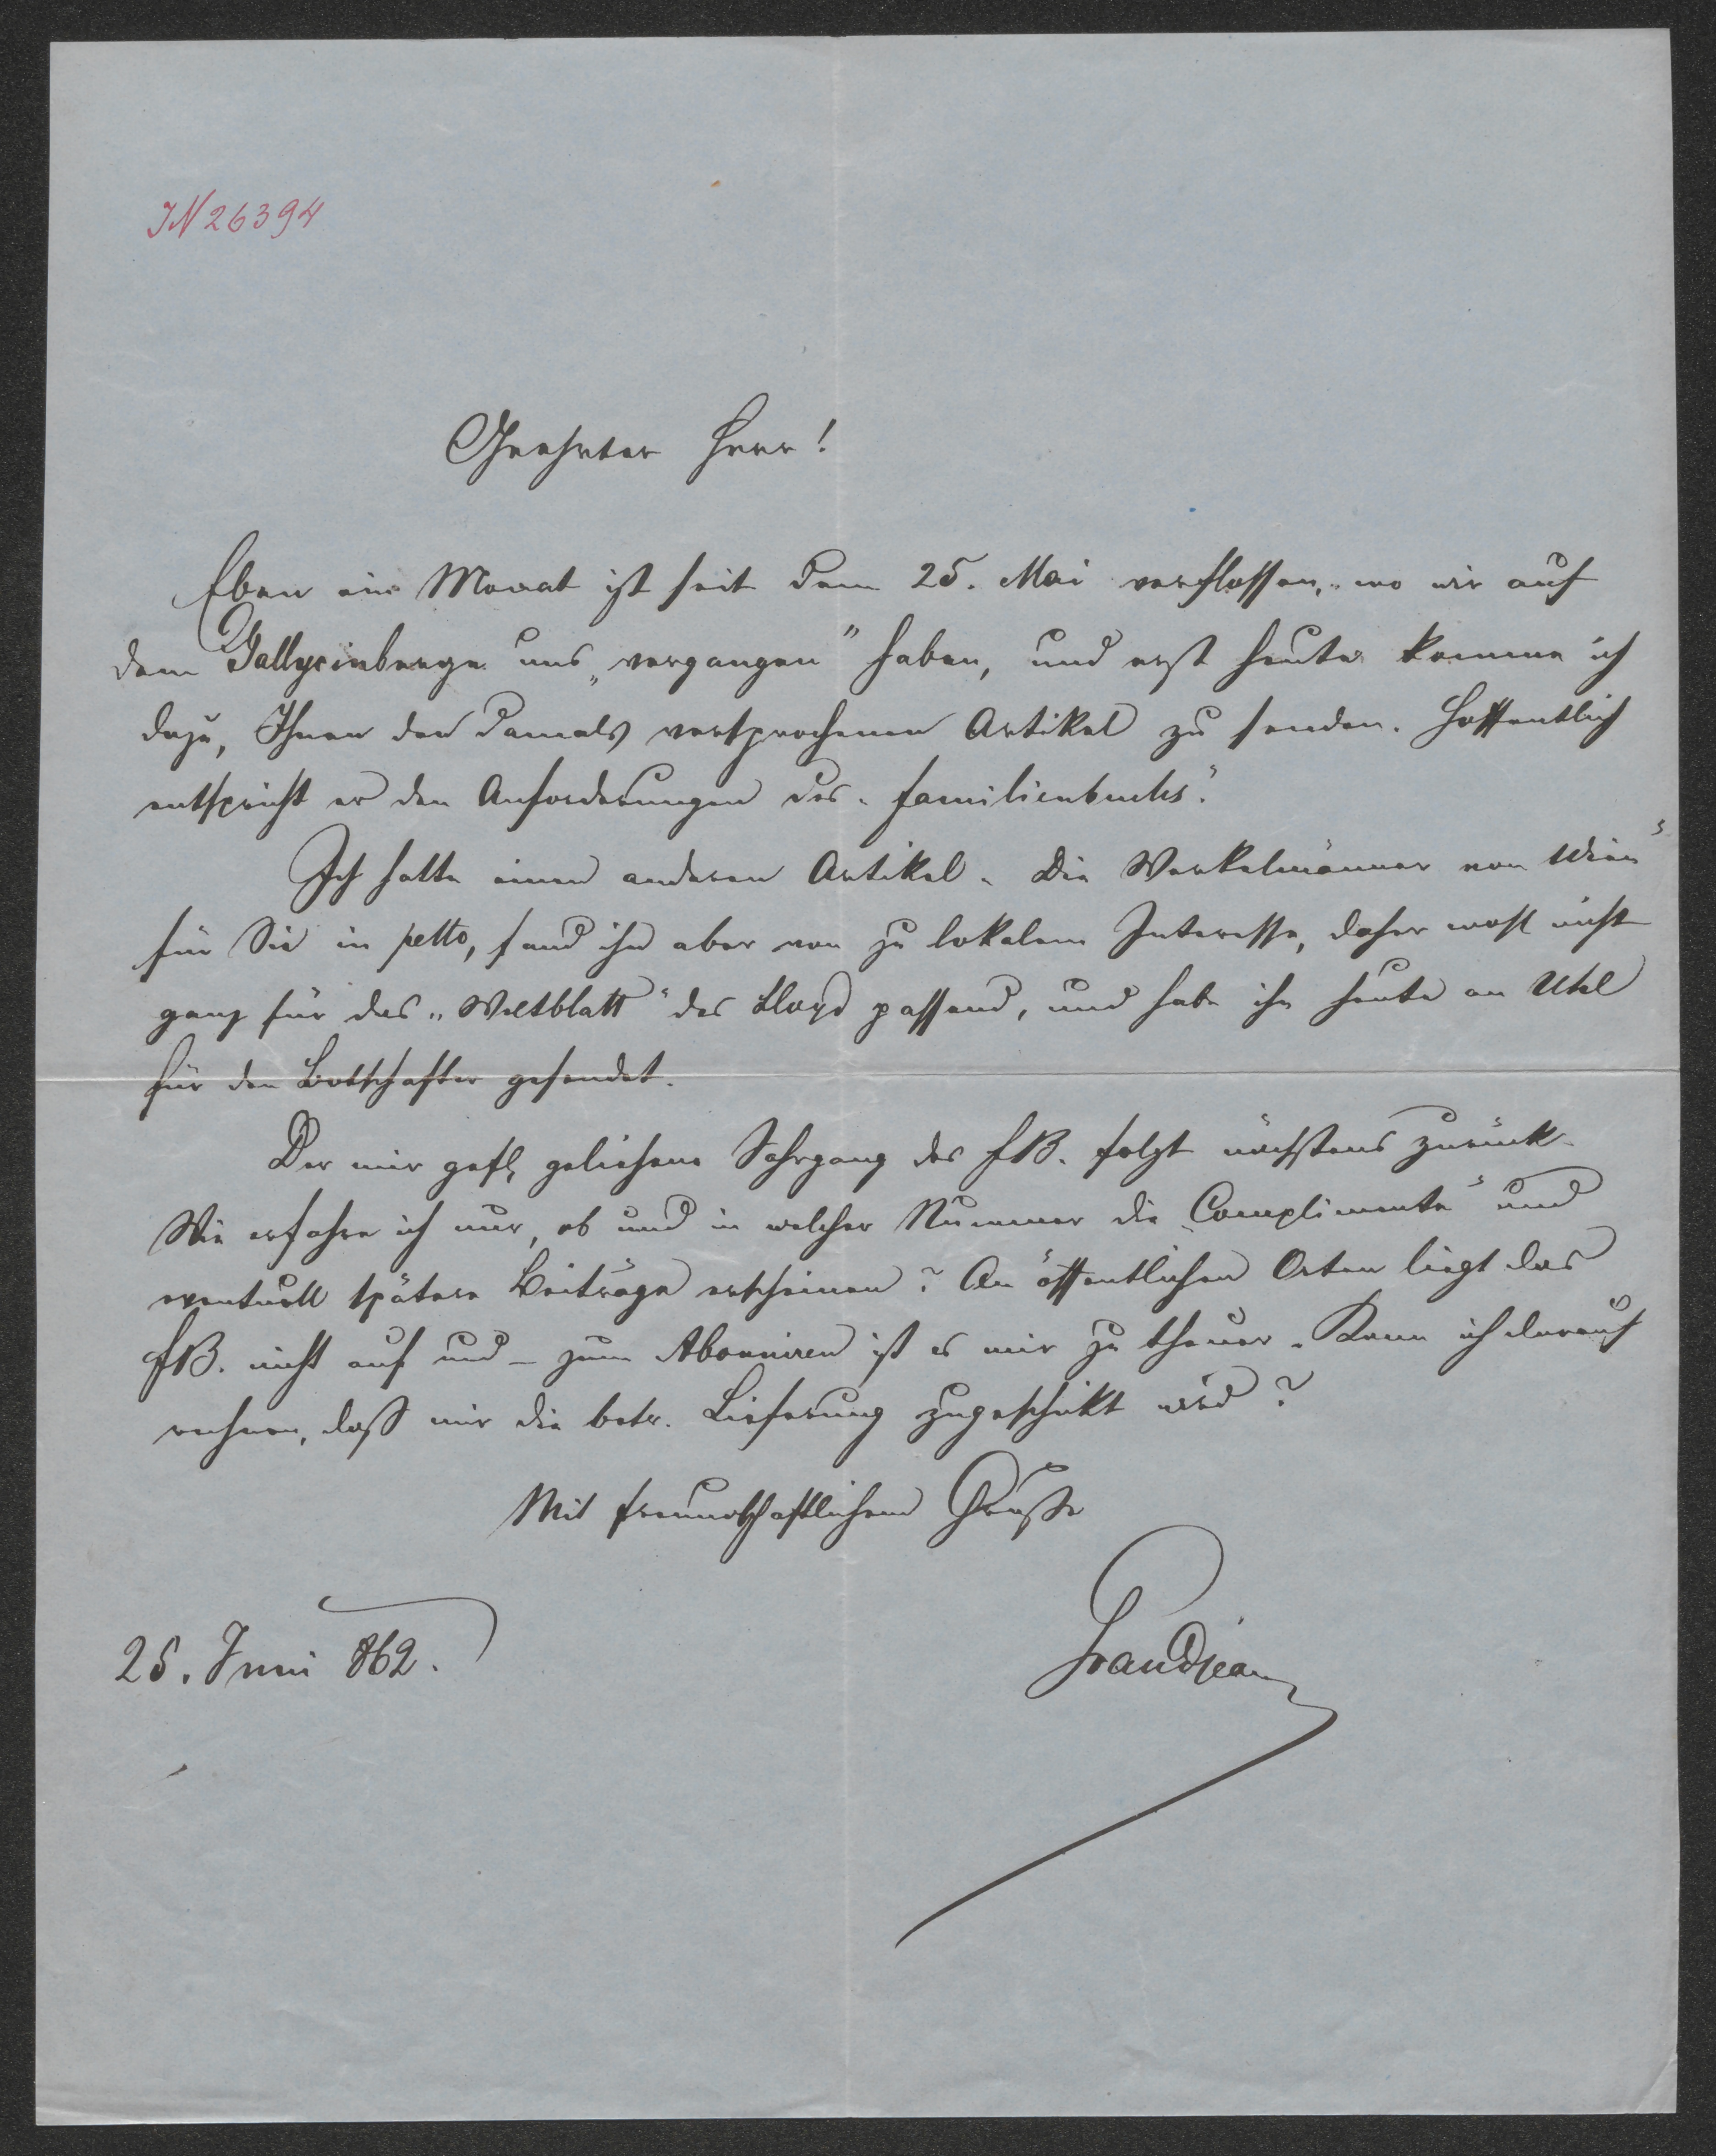 IN 26394
Geehrter Herr!
Eben ein Monat ist seit dem 25. Mai verflossen, wo wir auf
dem Gallycinberge uns „vergangen" haben, und erst heute komme ich
dazu, Ihnen den damals versprochenen Artikel zu senden. Hoffentlich
entspricht er den Anforderungen des „Familienbuchs".
Ich hatte einen anderen Artikel „Die Werkelmänner von Wien"
für Sie in petto, fand ihn aber von zu lokalem Interesse, daher wohl nicht
ganz für das „Weltblatt" des Lloyd passend, und habe ihn heute an Uhl
für den Botschafter gesendet.
Der mir gefl. geliehene Jahrgang des FB. folgt nächstens zurück.
Wie erfahre ich nur, ob und in welcher Nummer die „Complimente" und
eventuell spätere Beiträge erscheinen? An öffentlichen Orten liegt das
FB. nicht auf und – zum Abonniren ist es mir zu theuer. Kann ich darauf
rechnen, daß mir die betr. Lieferung zugeschikt wird?
Mit freundschaftlichem Gruße
Grandjean
25. Juni 862.